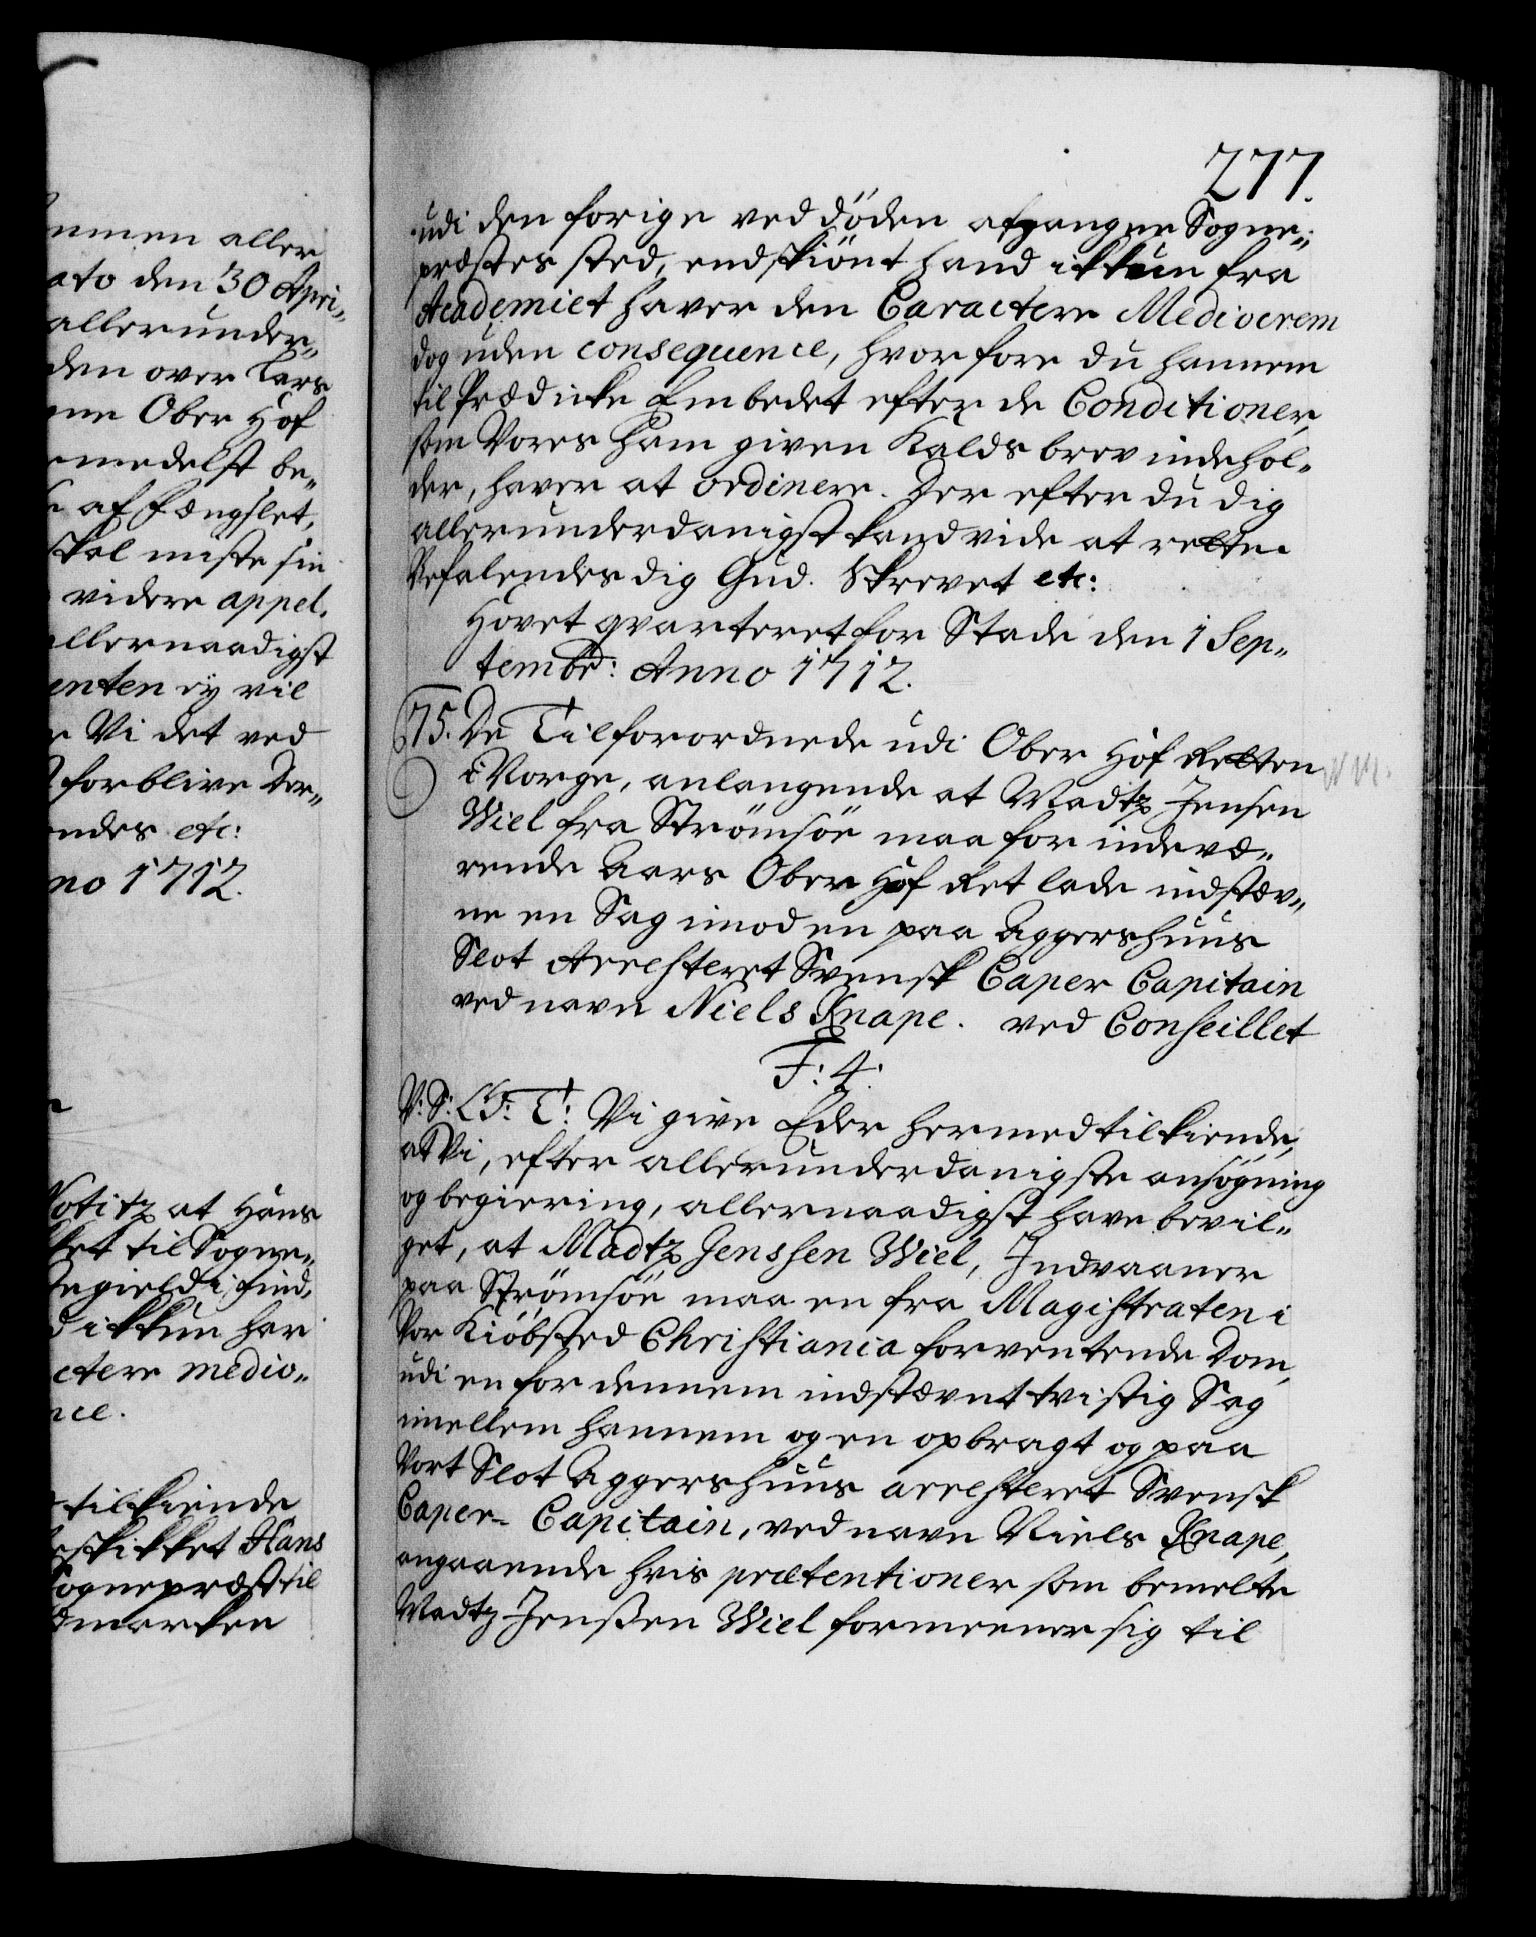 ommen aller
ato den 30 Apri„
allerunder„
den over Lars
gne Ober Hof
medelst be„
af fængslet,
skal miste sin
videre appel.
allernaadigst
enten ey vil
Vi det ved
forblive Der„
endes etc:
no 1712.
Notitz at Hans
ket til Sogne„
egield i find.
d ikkun har
ctere medio„
nce.
tilkiende
eskikket Hans
Sognepræst til
dmarken
277.
udi den forige ved döden afgangne Sogne„
præstes sted, endskiönt hand ikkun fra
Academiet haver den Caractere Mediocrem
dog uden consequence, hvorfore du hannem
til Prædicke Embedet efter de Conditioner,
som Vores ham given Kalds brev indehol„
der, haver at ordinere. Der efter du dig
allerunderdanigst kand vide at rette.
Befalendes dig Gud. Skrevet etc:
Hovet qvarteret for Stade den 1 Sep„
tembr: Anno 1712.
75. De Tilforordnede udi Ober Hof Retten
i Norge, anlangende at Madtz Jensen
Wiel fra Strömsöe maa for indevæ„
rende Aars Ober Hof Ret lade indstæv„
ne en Sag imod en paa Aggershuus
Slot Arresteret Svensk Caper Capitain
ved navn Niels Knape. ved Conseillet
F: 4:
V: S: G: T: Vi give Eder hermed tilkiende,
at Vi, efter allerunderdanigste ansögning
og begiering, allernaadigst have bevil„
get, at Madtz Jenssen Wiel, Indvaaner
paa Strömsöe maa en fra Magistraten i
Vor Kiöbsted Christiania forventende Dom,
udi en for dennem indstævnt tvistig Sag
imellem hannem og en opbragt og paa
Vort Slot Aggershuus arresteret Svensk
Caper- Capitain, ved navn Niels Knape,
angaaende hvis prætentioner som bemelte
Madtz Jenssen Wiel formeener sig til